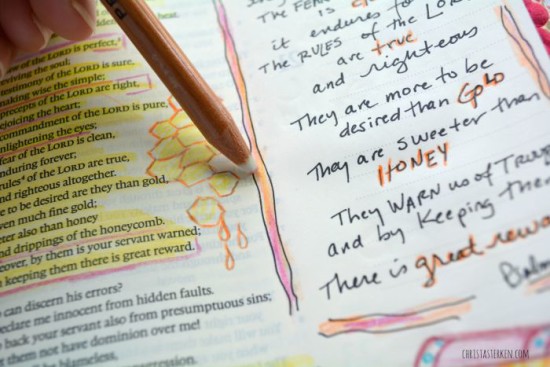 of the LORD is perfect,
reviving the soul;
testimony of the LORD is sure,
making wise the simple;
precepts of the LORD are right,
rejoicing the heart;
commandment of the LORD is pure,
enlightening the eyes;
fear of the LORD is clean,
enduring forever;
rules of the LORD are true,
and righteous altogether.
e to be desired are they than gold,
even much fine gold;
eter also than honey
and drippings of the honeycomb.
eover, by them is your servant warned;
keeping them there is great reward.
can discern his errors?
eclare me innocent from hidden faults.
back your servant also from presumptuous sins;
t them not have dominion over me!
ll be blameless,
THE FEAR
is
it endures to
THE RULES of the LORD
are true
and righteous
They are more to be
desired than GOLD
They are sweeter than
HONEY
They WARN us of TROU
and by keeping the
There is great rewa
Psalm
CHRISTASTERKEN.COM